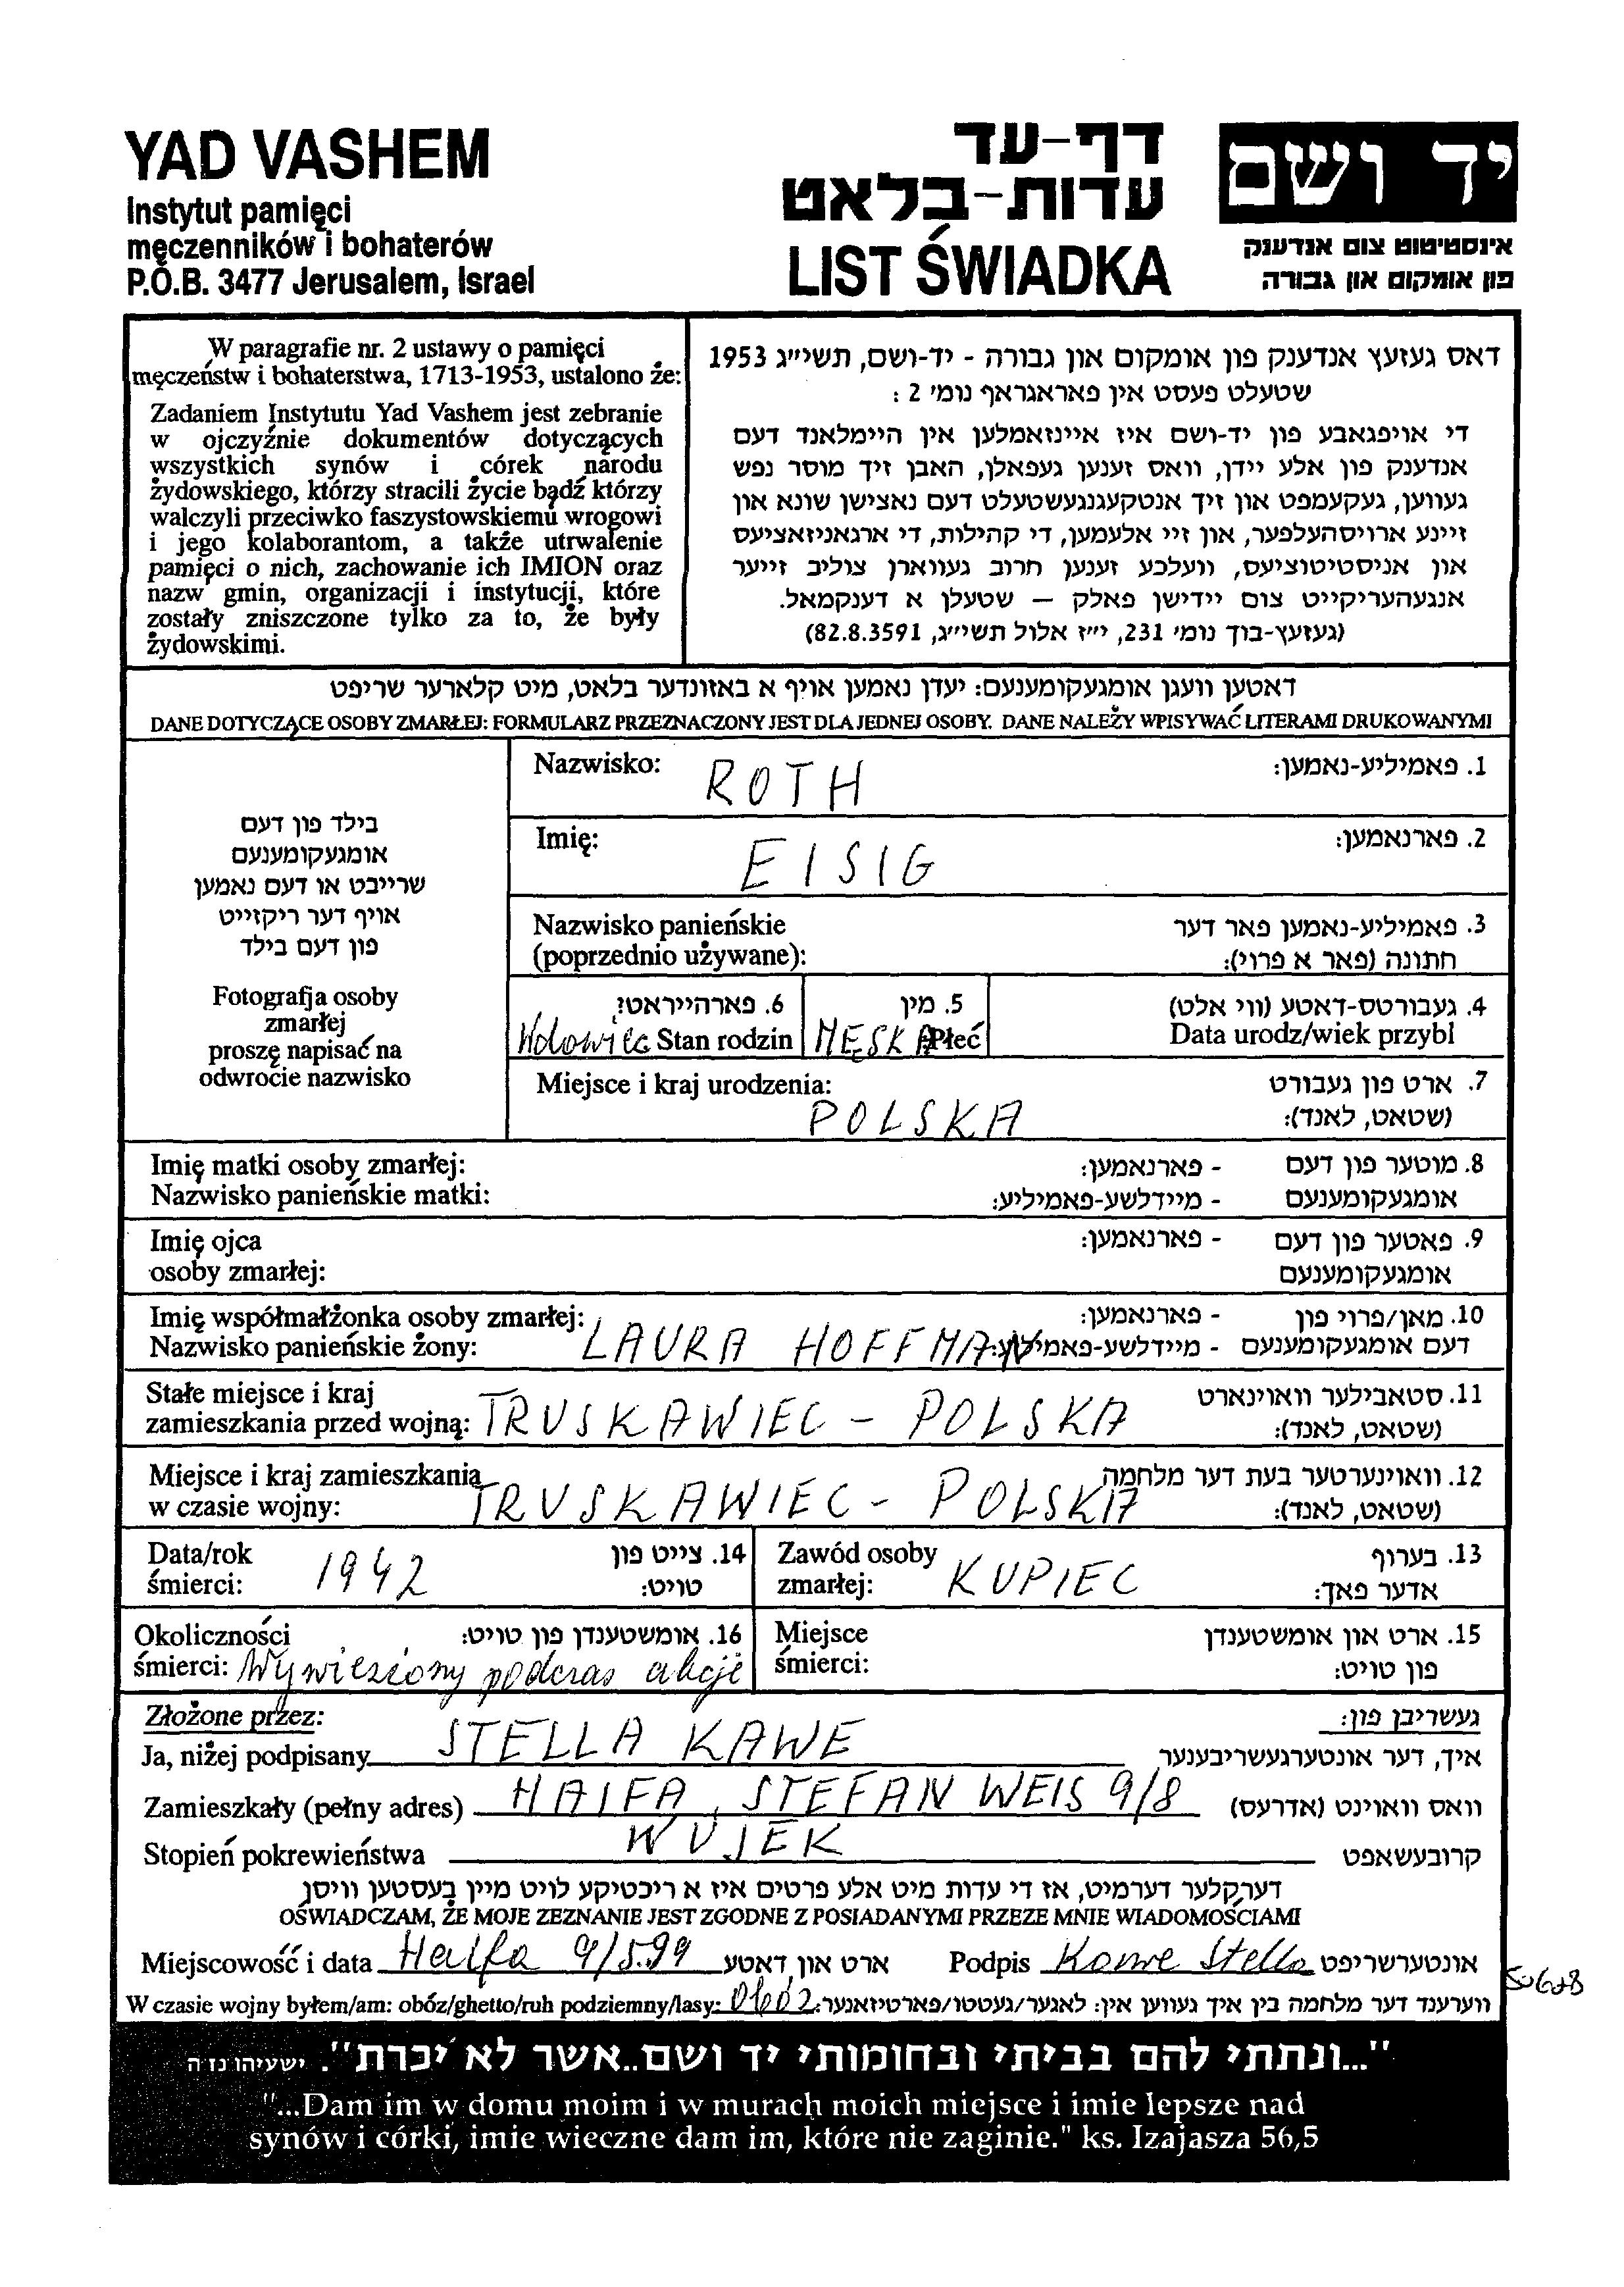 YAD VASHEM
Instytut pamięci
męczenników i bohaterów
P.O.B. 3477 Jerusalem, Israel
דף-עד
עדות-בלאט
LIST ŚWIADKA
יד ושם
אינסטיטוט צום אנדענק
פון אומקום און גבורה
W paragrafie nr. 2 ustawy o pamięci
męczeństw i bohaterstwa, 1713-1953, ustalono że:
Zadaniem Instytutu Yad Vashem jest zebranie
w ojczyźnie dokumentów dotyczących
wszystkich synów i córek narodu
żydowskiego, którzy stracili życie bądź którzy
walczyli przeciwko faszystowskiemu wrogowi
i jego kolaborantom, a także utrwalenie
pamięci o nich, zachowanie ich IMION oraz
nazw gmin, organizacji i instytucji, które
zostały zniszczone tylko za to, że były
żydowskimi.
דאס געזעץ אנדענק פון אומקום און גבורה - יד-ושם, תשי״ג 1953
שטעלט פעסט אין פאראגראף נומ׳ 2 :
די אויפגאבע פון יד-ושם איז איינזאמלען אין היימלאנד דעם
אנדענק פון אלע יידן, וואס זענען געפאלן, האבן זיך מוסר נפש
געווען, געקעמפט און זיך אנטקעגנגעשטעלט דעם נאצישן שונא און
זיינע ארויסהעלפער, און זיי אלעמען, די קהילות, די ארגאניזאציעס
און אניסטיטוציעס, וועלכע זענען חרוב געווארן צוליב זייער
אנגעהעריקייט צום יידישן פאלק – שטעלן א דענקמאל.
(געזעץ-בוך נומ׳ 231, י״ז אלול תשי״ג, 82.8.3591)
דאטען וועגן אומגעקומענעם: יעדן נאמען אויף א באזונדער בלאט, מיט קלארער שריפט
DANE DOTYCZĄCE OSOBY ZMARŁEJ: FORMULARZ PRZEZNACZONY JEST DLA JEDNEJ OSOBY. DANE NALEŻY WPISYWAĆ LITERAMI DRUKOWANYMI
בילד פון דעם
אומגעקומענעם
שרייבט או דעם נאמען
אויף דער ריקזייט
פון דעם בילד
Fotografja osoby
zmarłej
proszę napisać na
odwrocie nazwisko
Nazwisko: ROTH 1. פאמיליע-נאמען:
Imię: EISIG 2. פארנאמען:
Nazwisko panieńskie 3. פאמיליע-נאמען פאר דער
(poprzednio używane): חתונה (פאר א פרוי):
6. פארהייראט?, 5. מין 4. געבורטס-דאטע (ווי אלט)
Wdowiec Stan rodzin MĘSKA Płeć Data urodz/wiek przybl
Miejsce i kraj urodzenia: 7. ארט פון געבורט
POLSKA (שטאט, לאנד):
Imię matki osoby zmarłej: - פארנאמען: 8. מוטער פון דעם
Nazwisko panieńskie matki: - מיידלשע-פאמיליע: אומגעקומענעם
Imię ojca - פארנאמען: 9. פאטער פון דעם
osoby zmarłej: אומגעקומענעם
Imię współmałżonka osoby zmarłej: - פארנאמען: 10. מאן/פרוי פון
Nazwisko panieńskie żony: LAURA HOFFMAN - מיידלשע-פאמיליע: דעם אומגעקומענעם
Stałe miejsce i kraj 11. סטאבילער וואוינארט
zamieszkania przed wojną: TRUSKAWIEC - POLSKA (שטאט, לאנד):
Miejsce i kraj zamieszkania 12. וואוינערטער בעת דער מלחמה
w czasie wojny: TRUSKAWIEC - POLSKA (שטאט, לאנד):
Data/rok 1942 14. צייט פון
śmierci: טויט:
Zawód osoby 13. בערוף
zmarłej: KUPIEC אדער פאך:
Okoliczności 16. אומשטענדן פון טויט:
śmierci: Wywieziony podczas akcji
Miejsce 15. ארט און אומשטענדן
śmierci: פון טויט:
Złożone przez: געשריבן פון:
Ja, niżej podpisany STELLA KAWE איך, דער אונטערגעשריבענער
Zamieszkały (pełny adres) HAIFA, STEFAN WEIS 9/8 וואס וואוינט (אדרעס)
Stopień pokrewieństwa WUJEK קרובעשאפט
דערקלער דערמיט, אז די עדות מיט אלע פרטים איז א ריכטיקע לויט מיין בעסטען וויסן
OŚWIADCZAM, ŻE MOJE ZEZNANIE JEST ZGODNE Z POSIADANYMI PRZEZE MNIE WIADOMOŚCIAMI
Miejscowość i data Haifa 9/5.99 ארט און דאטע Podpis Kawe Stella אונטערשריפט
W czasie wojny byłem/am: obóz/ghetto/ruh podziemny/lasy: OBÓZ ווערענד דער מלחמה בין איך געווען אין: לאגער/געטטו/פארטיזאנער:
"...ונתתי להם בביתי ובחומותי יד ושם..אשר לא יכרת". ישעיהו נו ה
"...Dam im w domu moim i w murach moich miejsce i imie lepsze nad
synów i córki, imie wieczne dam im, które nie zaginie." ks. Izajasza 56,5